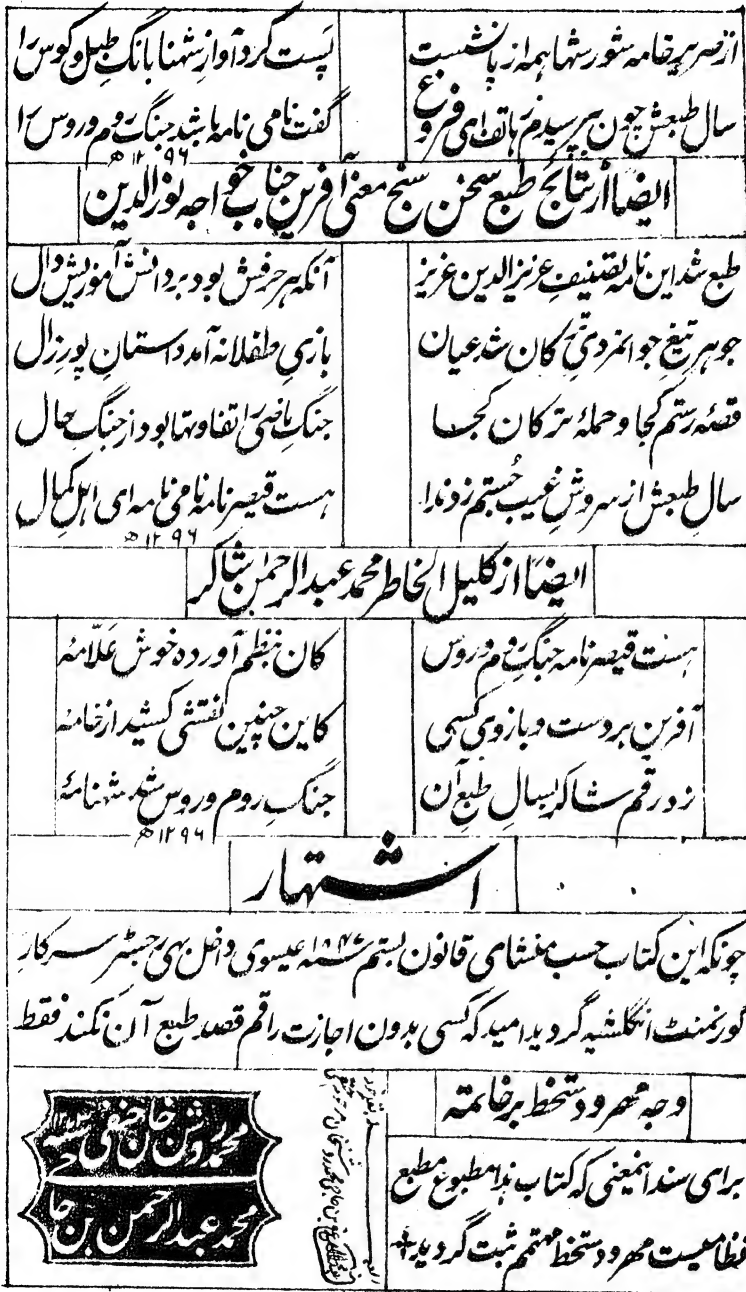 از صریر خامه شور شهنا همه از پا نشست
پست کرد آواز شهنا بانگ طبل و کوس را
سال طبعش چون بپرسیدم ز هاتف ای فروغ
گفت نامی نامه باشد جنگ روم و روس را
۱۲۹۶ ھ
ایضاً از نتائج طبع سخن سنج معنی آفرین جناب خواجه نورالدین
طبع شد این نامه تصنیف عزیزالدین عزیز
آنکه هر حرفش بود بر دانش آموزیش دال
جوهر تیغ جوانمردی ترکان شد عیان
بازی طفلانه آمد داستان پور زال
قصهٔ رستم کجا و حملهٔ ترکان کجا
جنگ ماضی را تفاوتها بود از جنگ حال
سال طبعش از سروش غیب جستم زد ندا
هست قیصرنامه نامی نامه ای اهل کمال
۱۲۹۶ ھ
ایضاً از کلیل الخاطر محمد عبدالرحمن شاکر
هست قیصرنامه جنگ روم و روس
کان بنظم آورده خوش علامهٔ
آفرین بر دست و بازوی کسی
کاین چنین نقشی کشید از خامهٔ
زد رقم شاکر بسال طبع آن
جنگ روم و روس شد شهنامهٔ
۱۲۹۶ ھ
اشتهار
چونکه این کتاب حسب منشای قانون بستم ۱۸۴۷ سنه عیسوی داخل بهی رجسٹر سرکار
گورنمنٹ انگلشیه گردید امید که کسی بدون اجازت راقم قصد طبع آن نکند فقط
وجه مهر و دستخط بر خاتمه
برای سند اینمعنی که کتاب هذا مطبوع مطبع
نظامیست مهر و دستخط مهتمم ثبت گردید
محمد روشن خان حنفی
محمد عبدالرحمن بن حا